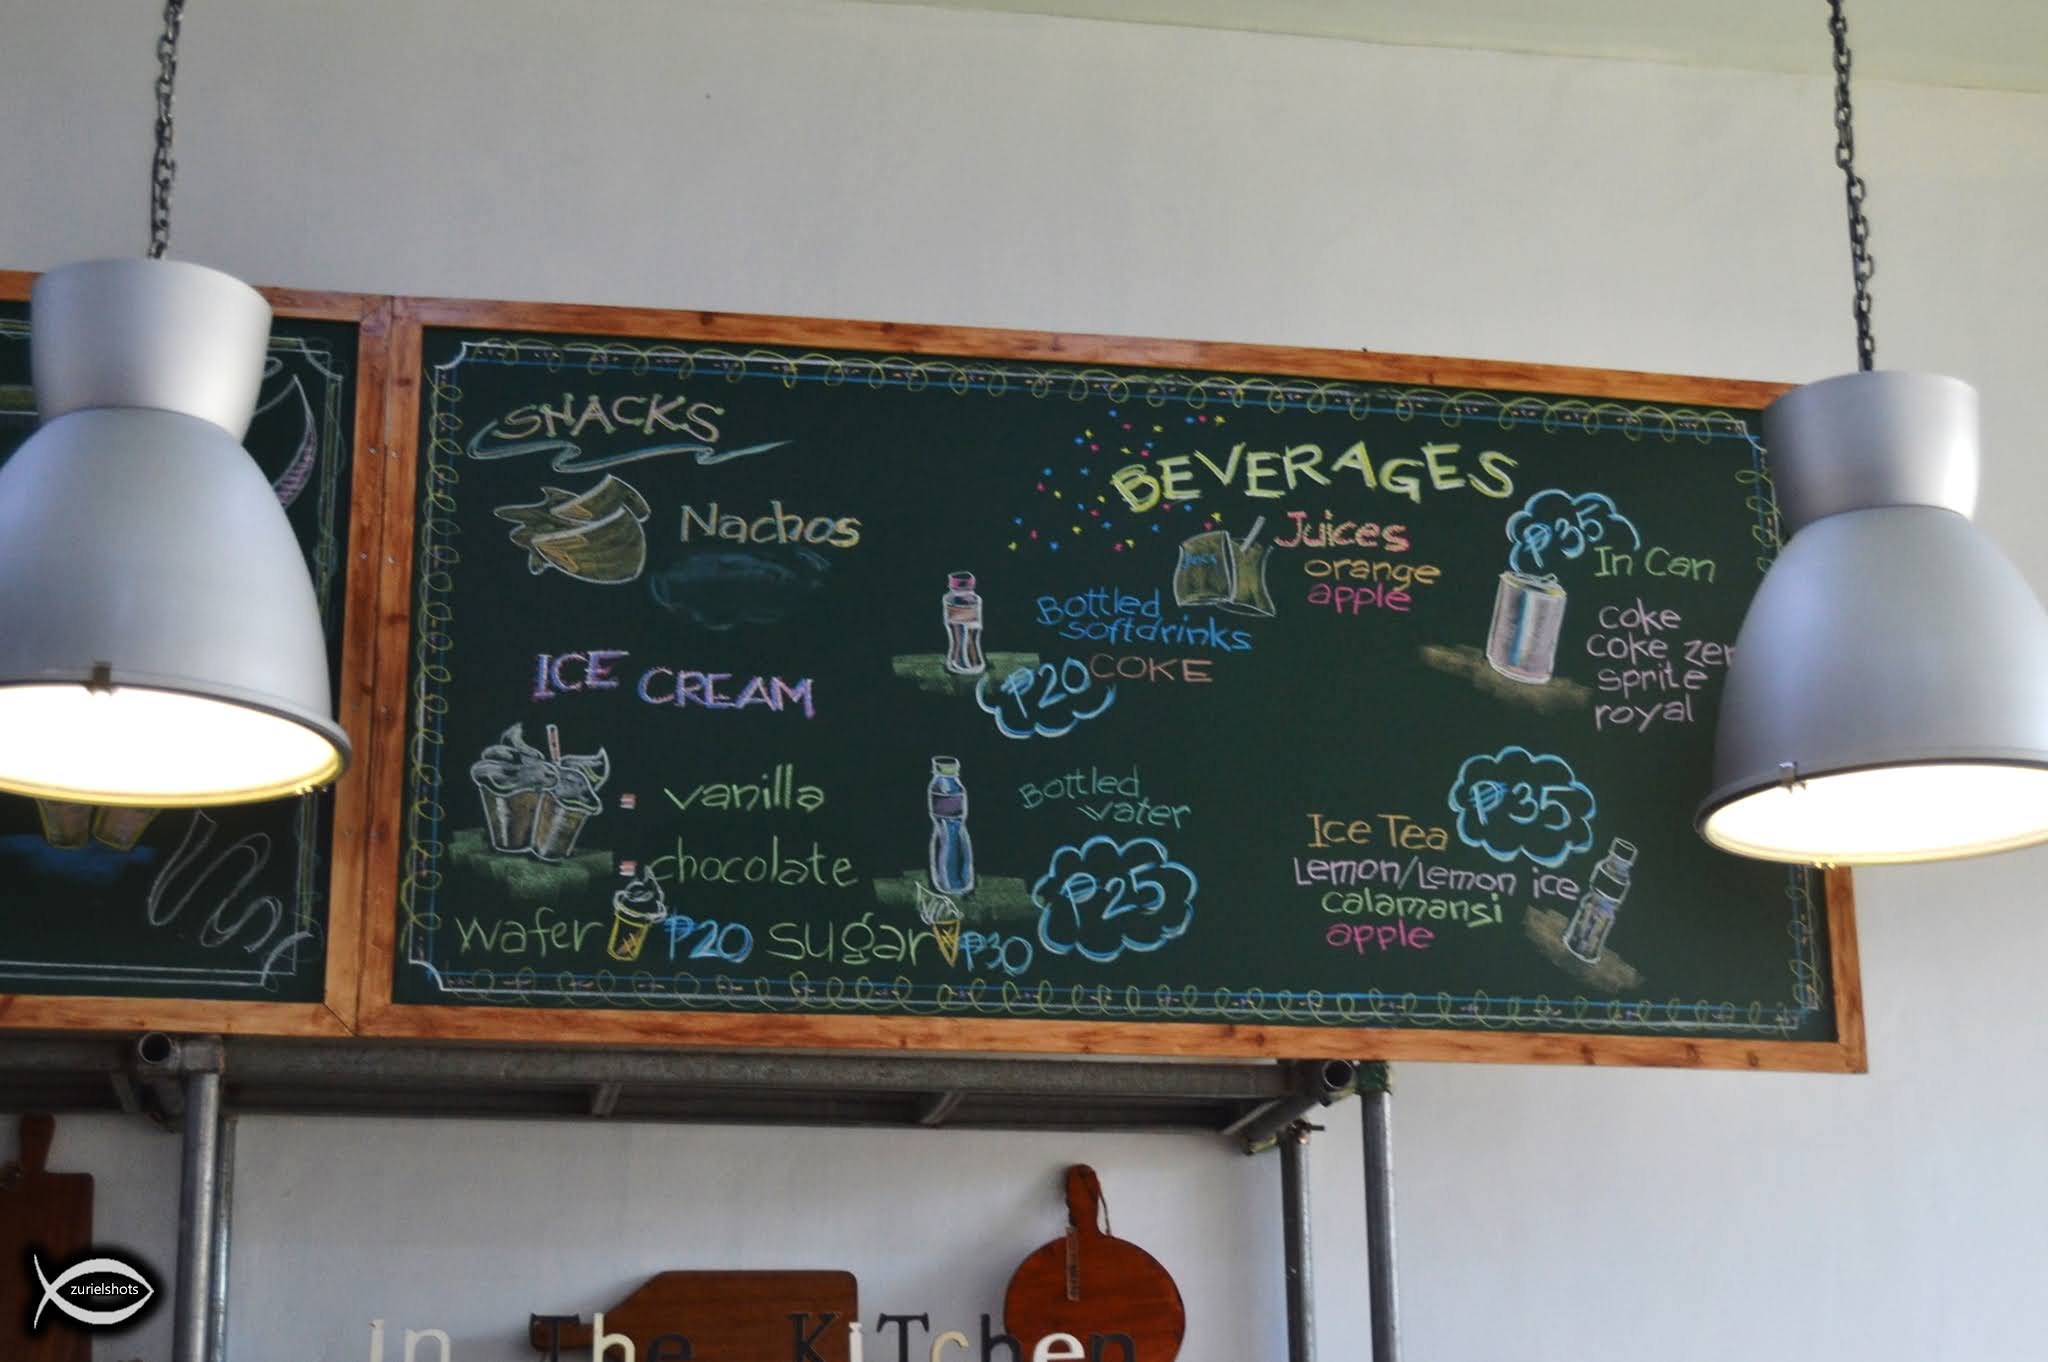 SNACKS
Nachos
ICE CREAM
= vanilla
= chocolate
wafer ₱20 sugar ₱30
BEVERAGES
Juices
orange
apple
Bottled
softdrinks
₱20 COKE
Bottled
water
₱25
₱35 In Can
coke
coke zer
sprite
royal
Ice Tea ₱35
Lemon/Lemon ice
calamansi
apple
in The KiTchen
zurielshots